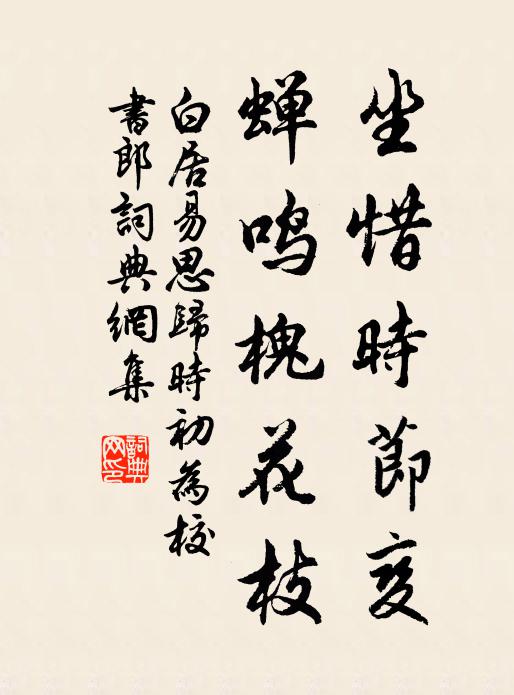 坐惜時節变
蝉鸣槐花枝
白居易思歸時初為校
書郎詞典網集
詞典网印